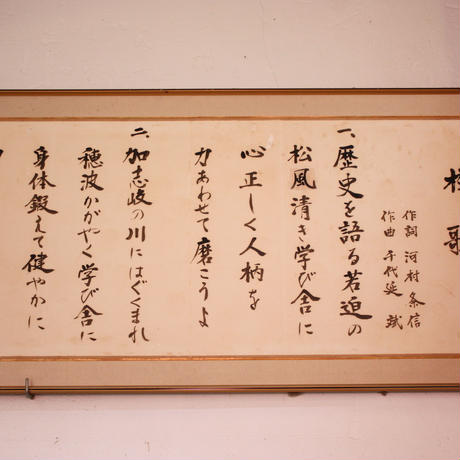 校歌
作詞 河村条信
作曲 千代延 斌
一、歴史を語る若迫の
松風清き学び舎に
心正しく人柄を
力あわせて磨こうよ
二、加志岐の川にはぐくまれ
穂波かがやく学び舎に
身体鍛えて健やかに